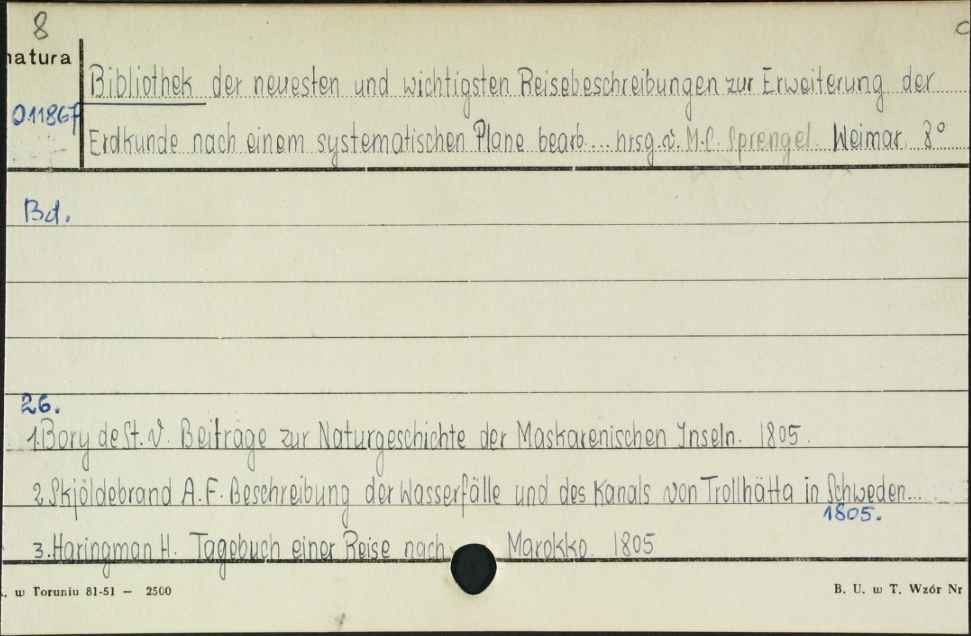 8
natura
011867
Bibliothek der neuesten und wichtigsten Reisebeschreibungen zur Erweiterung der
Erdkunde nach einem systematischen Plane bearb... hrsg. v. M.C. Sprengel. Weimar. 8°
Bd.
26.
1. Bory de St. V. Beiträge zur Naturgeschichte der Maskarenischen Inseln. 1805.
2. Skjöldebrand A.F. Beschreibung der Wasserfälle und des Kanals von Trollhätta in Schweden...
1805.
3. Haringman H. Tagebuch einer Reise nach Marokko. 1805
. w Toruniu 81-51 — 2500
B. U. w T. Wzór Nr